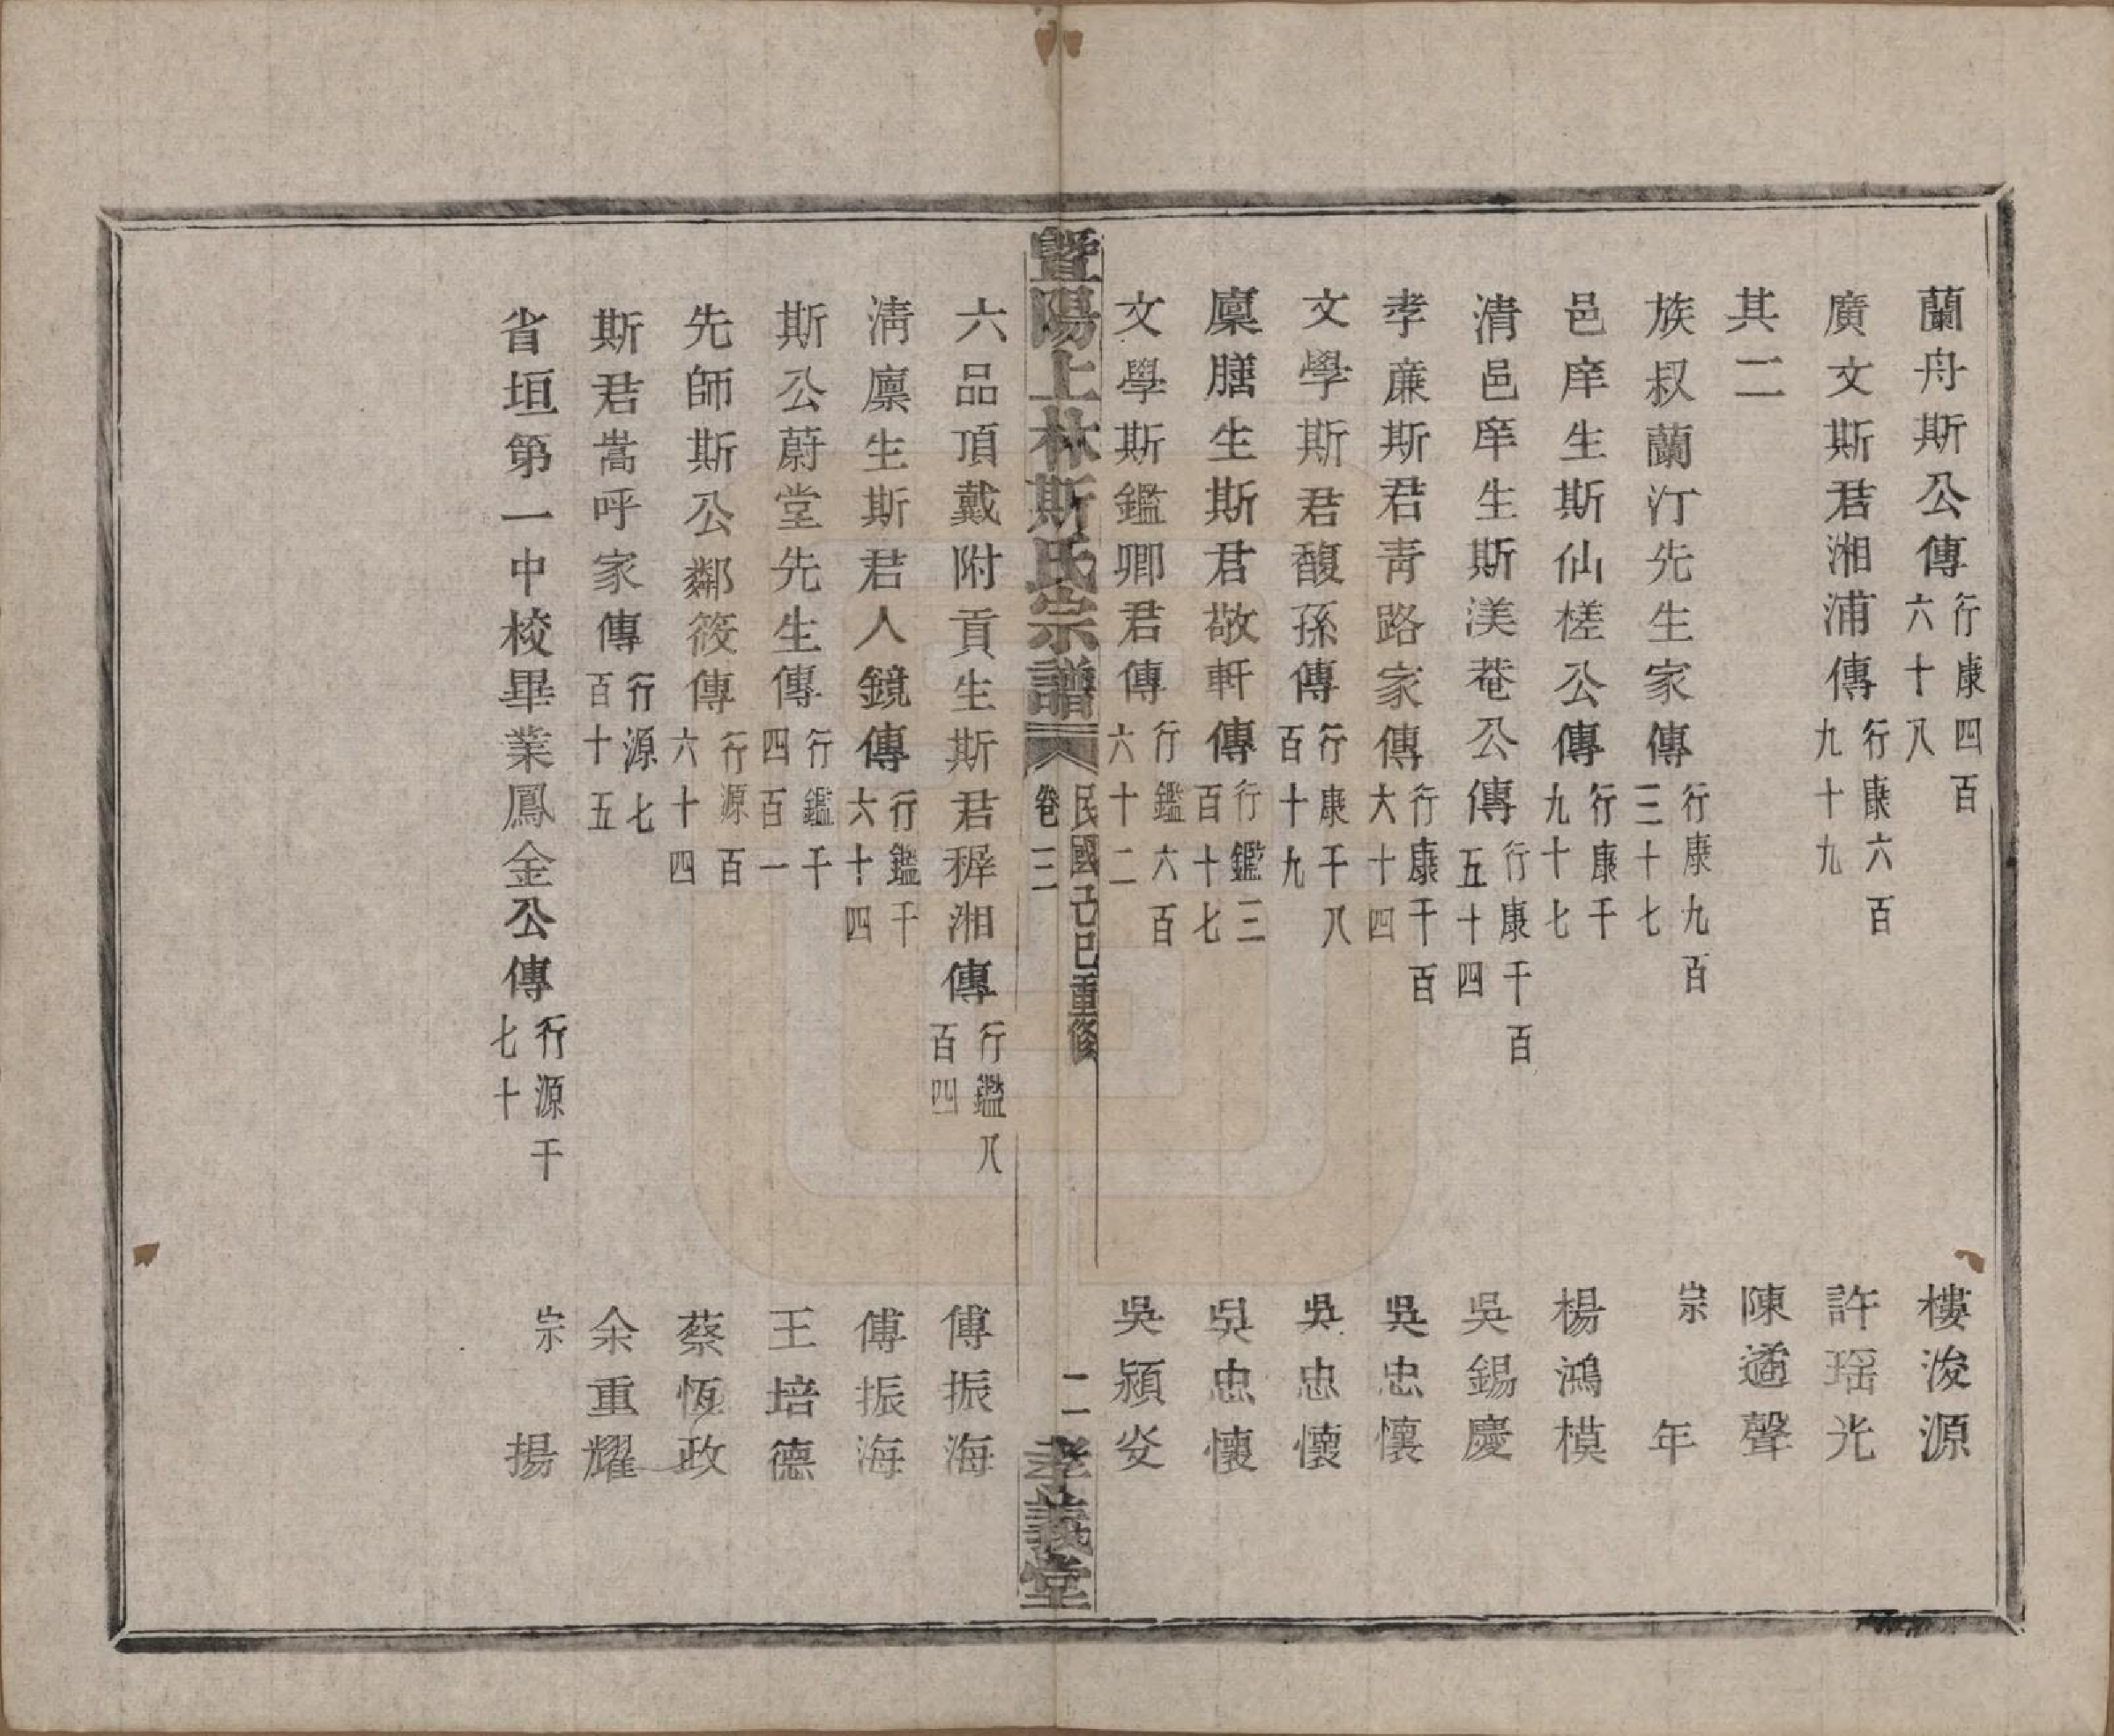 蘭舟斯公傳行康四百六十八 樓浚源
廣文斯君湘浦傳行康六百九十九 許瑶光
其二 陳遹聲
族叔蘭汀先生家傳行康九百三十七 宗年
邑庠生斯仙槎公傳行康千九十七 楊鴻模
清邑庠生斯渼菴公傳行康千百五十四 吳錫慶
孝廉斯君青路家傳行康千百六十四 吳忠懷
文學斯君馥孫傳行康千八百十九 吳忠懷
廩膳生斯君敬軒傳行鑑三百十七 吳忠懷
文學斯鑑卿君傳行鑑六百六十二 吳潁炎
暨陽上林斯氏宗譜 卷三 民國己巳重修 二 孝義堂
六品頂戴附貢生斯君穉湘傳行鑑八百四 傅振海
清廪生斯君人鏡傳行鑑千六十四 傅振海
斯公蔚堂先生傳行鑑千四百一 王培德
先師斯公鄰筱傳行源百六十四 蔡恆政
斯君嵩呼家傳行源七百十五 余重耀
省垣第一中校畢業鳳金公傳行源千七十 宗揚